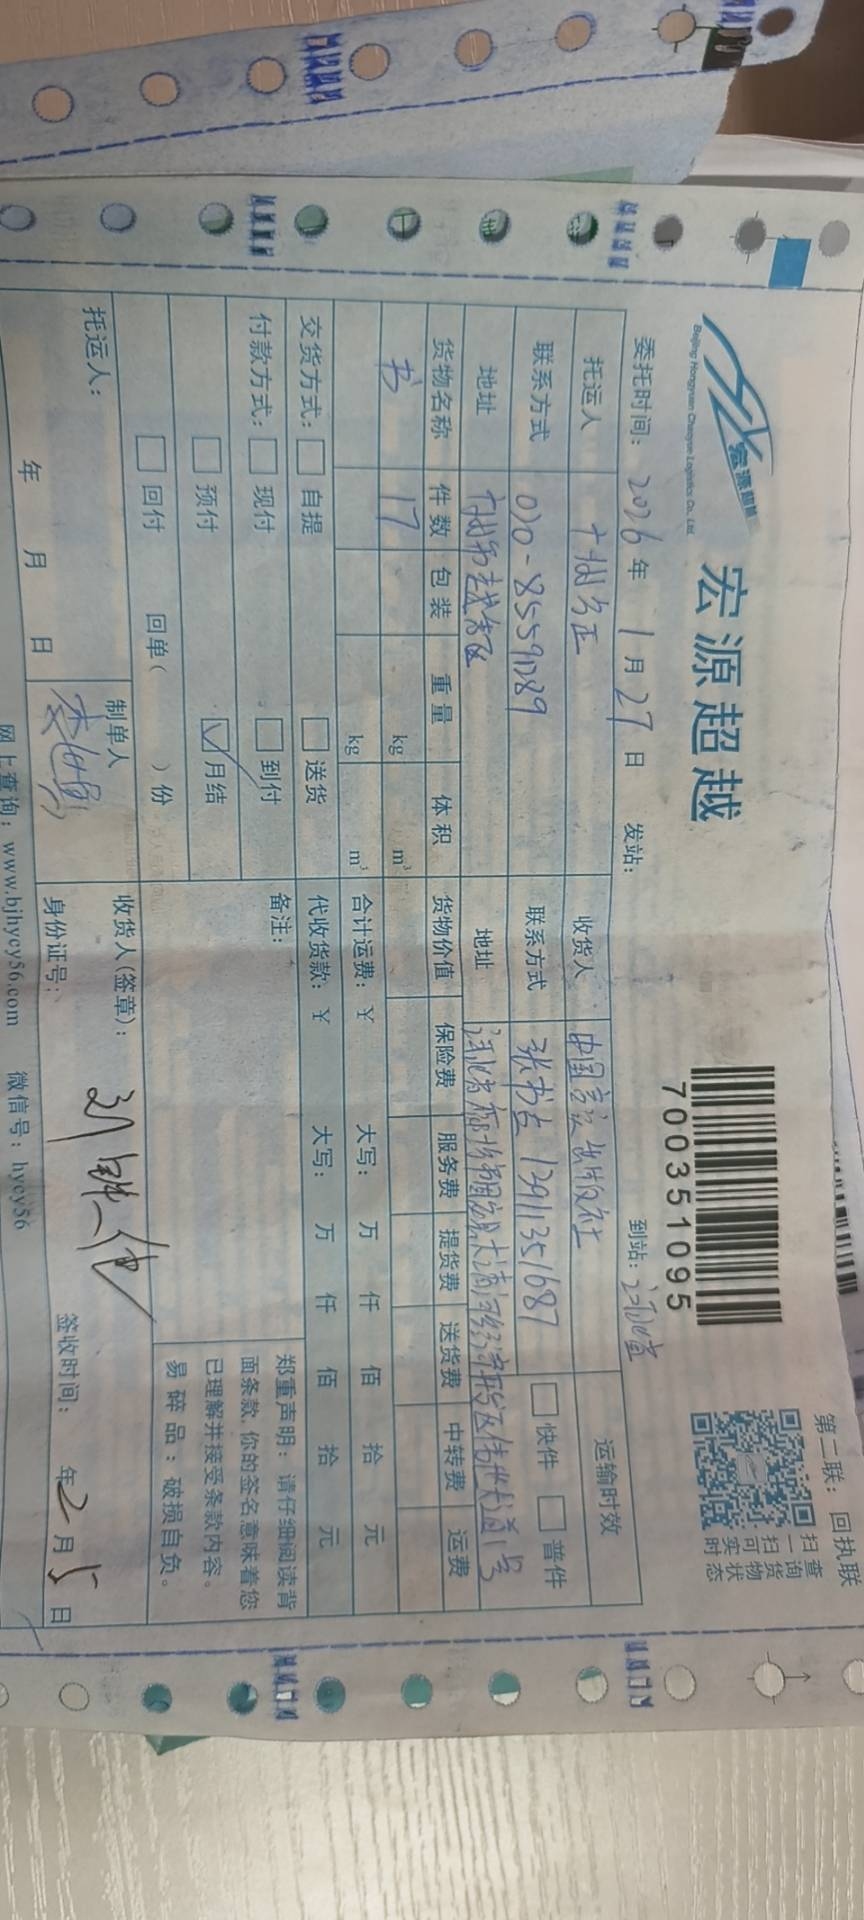 第二联：回执联
宏源超越
Beijing Hongyuan Chaoyue Logistics Co., Ltd.
宏源超越
700351095
扫一扫可实时
查询货物状态
委托时间：2026年1月27日 发站： 到站：
托运人 收货人 中国 出版社 运输时效
联系方式 020-85591289 联系方式 13911351687 快件 普件
地址 地址
货物名称 件数 包装 重量 体积 货物价值 保险费 服务费 提货费 送货费 中转费 运费
书 17 kg m³
kg m³ 合计运费：￥ 大写： 万 仟 佰 拾 元
交货方式： 自提 送货 代收货款：￥ 大写： 万 仟 佰 拾 元
付款方式： 现付 到付 备注：
预付 月结
回付 回单（ ）份
郑重声明：请仔细阅读背
面条款，你的签名意味着您
已理解并接受条款内容。
易碎品：破损自负。
托运人： 制单人 收货人(签章)：
年 月 日 身份证号： 签收时间： 年2月5日
网上查询：www.bjhycy56.com 微信号：hycy56